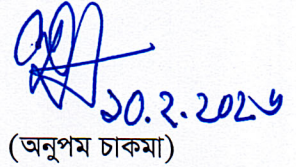 ১০.২.২০২৬
(অনুপম চাকমা)